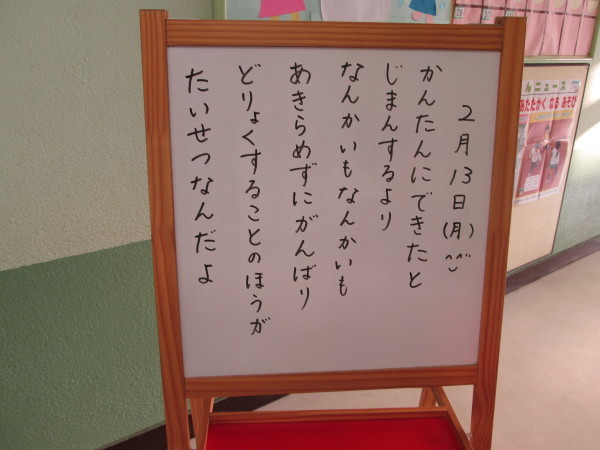 2月13日(月)
かんたんにできたと
じまんするより
なんかいもなんかいも
あきらめずにがんばり
どりょくすることのほうが
たいせつなんだよ
んニュース
あたたかく なる あそび